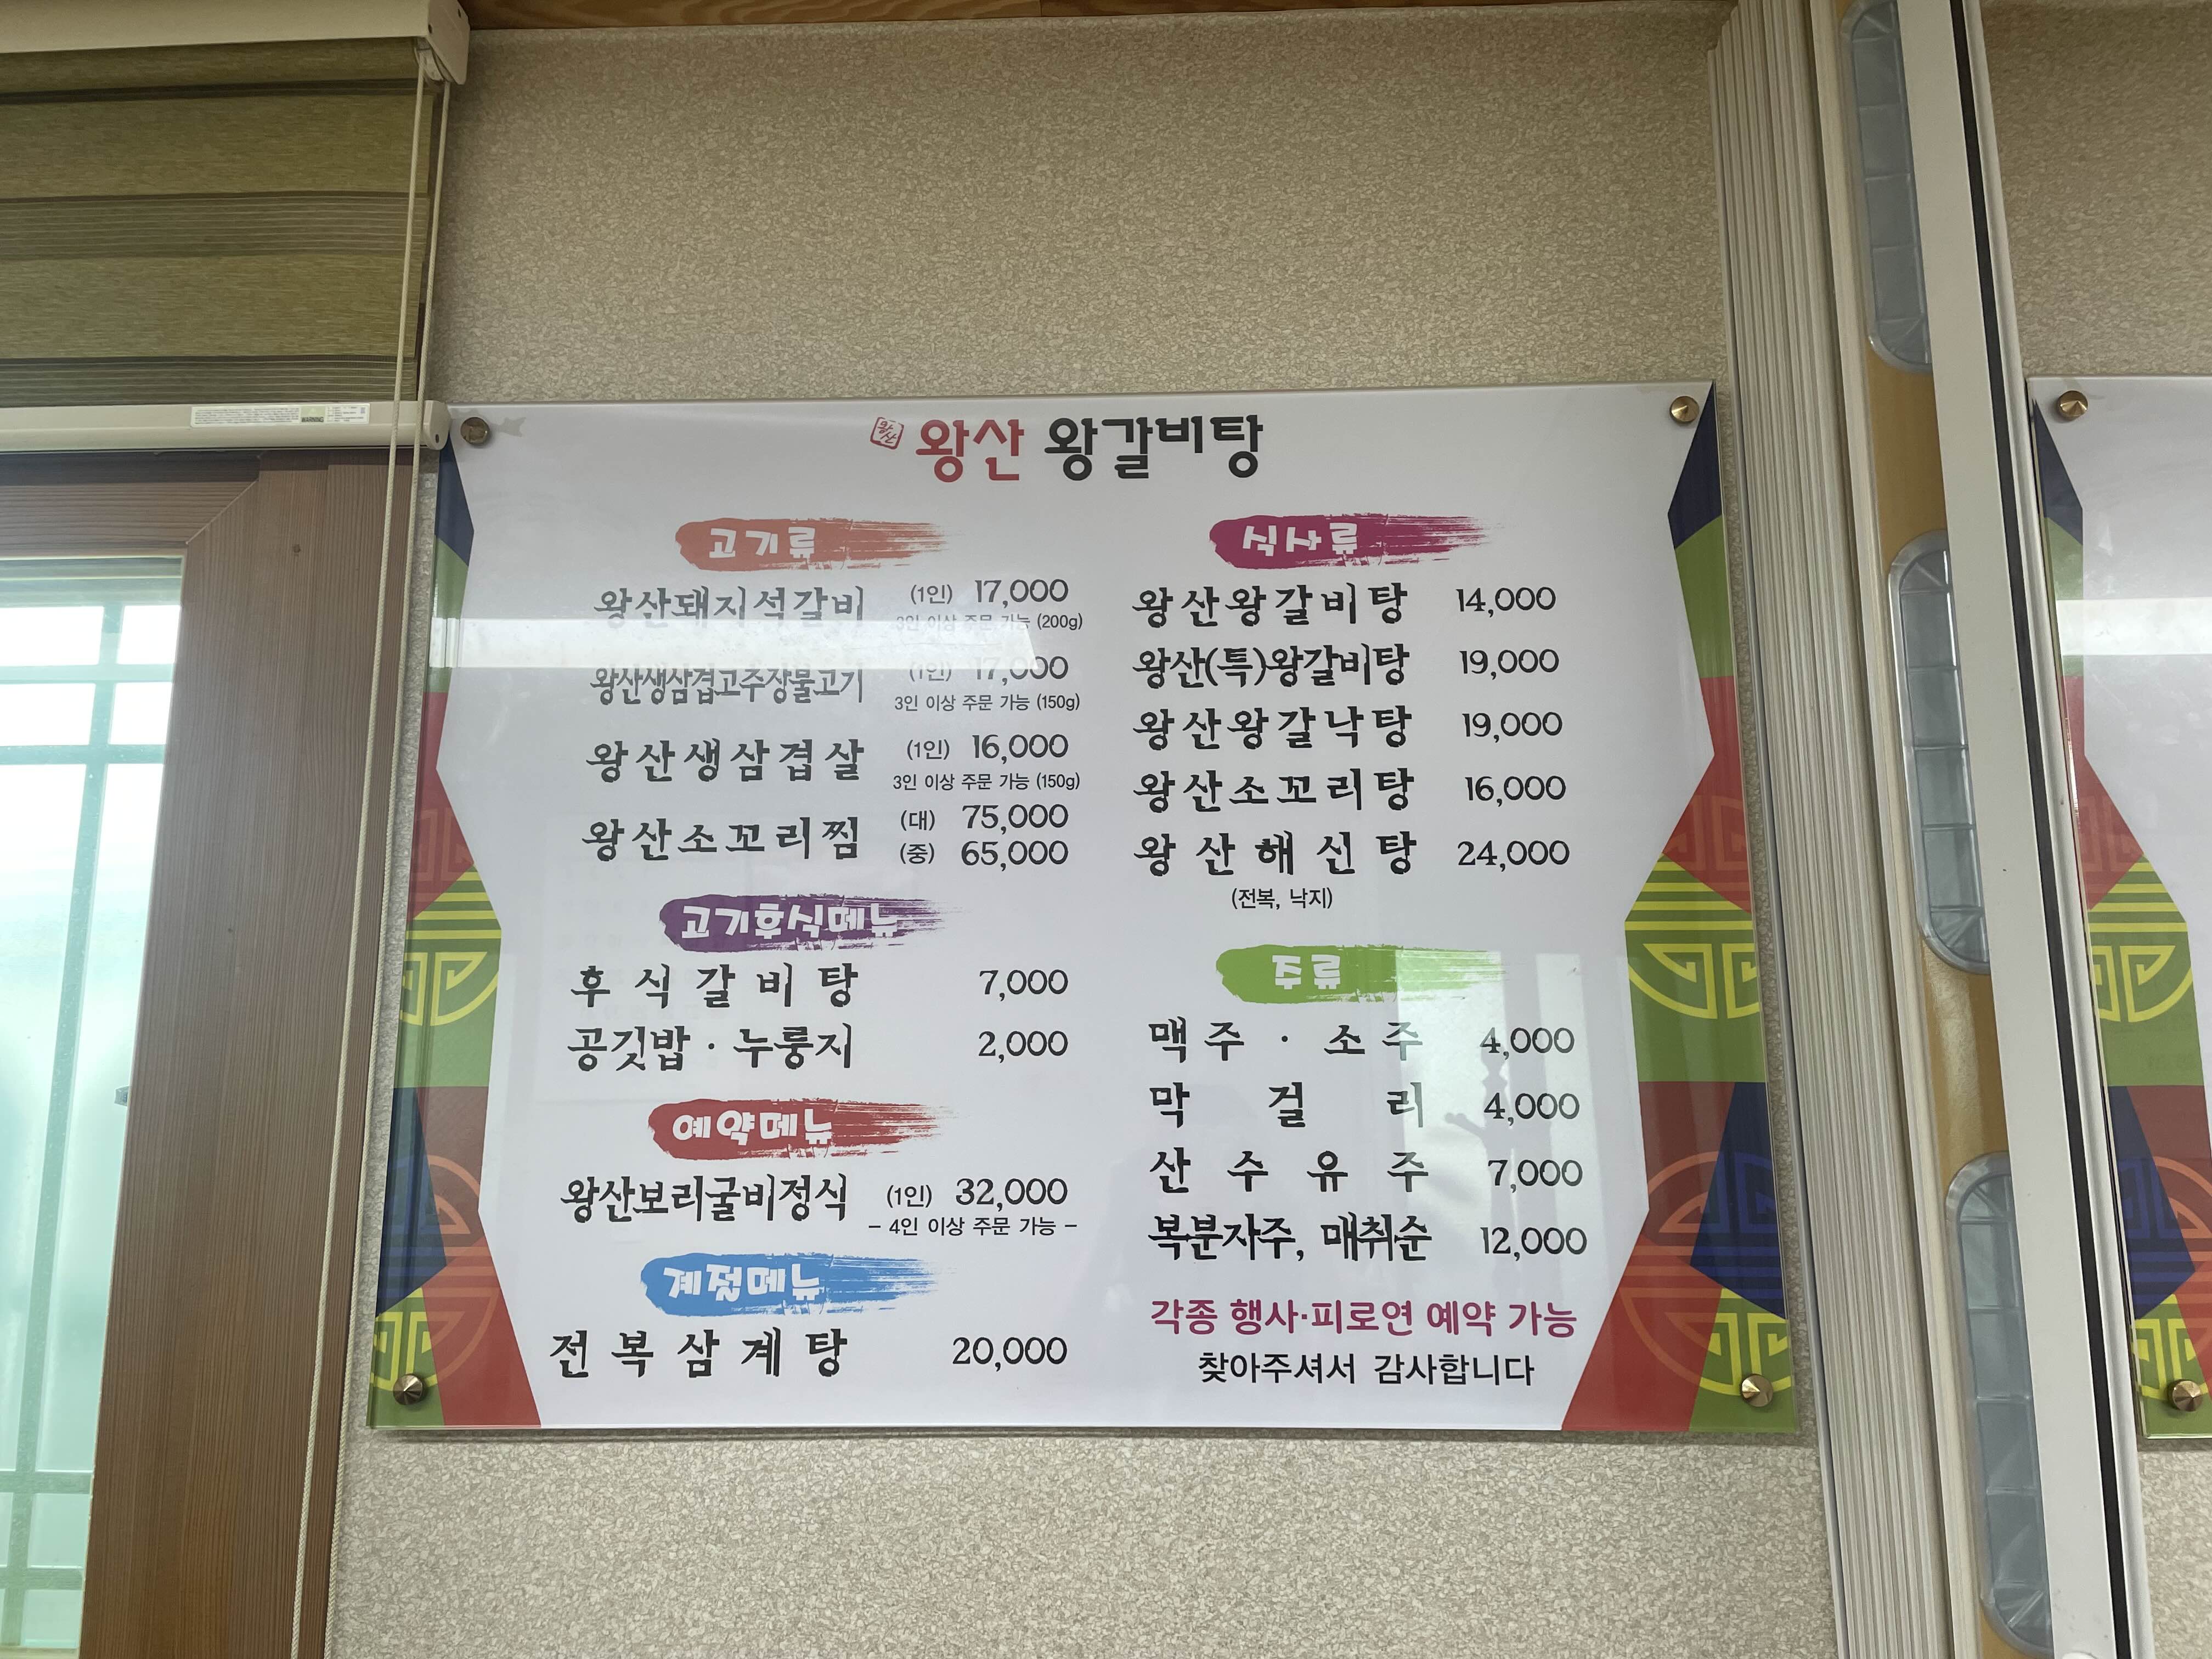 왕산 왕산 왕갈비탕
고기류
왕산돼지석갈비 (1인) 17,000
3인 이상 주문 가능 (200g)
왕산생삼겹고추장불고기 (1인) 17,000
3인 이상 주문 가능 (150g)
왕산생삼겹살 (1인) 16,000
3인 이상 주문 가능 (150g)
왕산소꼬리찜 (대) 75,000
(중) 65,000
고기후식메뉴
후식갈비탕 7,000
공깃밥 · 누룽지 2,000
예약메뉴
왕산보리굴비정식 (1인) 32,000
– 4인 이상 주문 가능 –
계절메뉴
전복삼계탕 20,000
식사류
왕산왕갈비탕 14,000
왕산(특)왕갈비탕 19,000
왕산왕갈낙탕 19,000
왕산소꼬리탕 16,000
왕산해신탕 24,000
(전복, 낙지)
주류
맥주 · 소주 4,000
막걸리 4,000
산수유주 7,000
복분자주, 매취순 12,000
각종 행사·피로연 예약 가능
찾아주셔서 감사합니다
WARNING